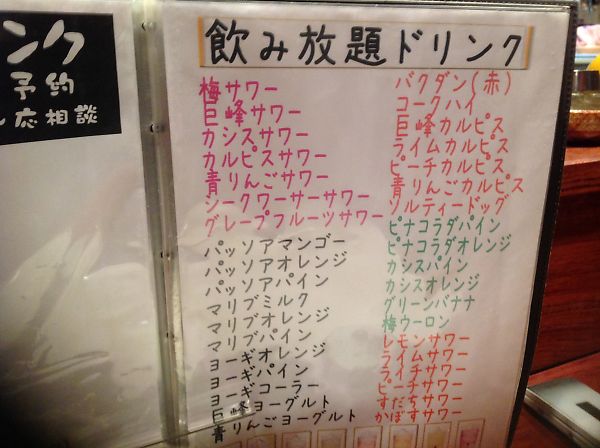 ンク
予約
応相談
飲み放題ドリンク
梅サワー
巨峰サワー
カシスサワー
カルピスサワー
青りんごサワー
シークワーサーサワー
グレープフルーツサワー
パッソアマンゴー
パッソアオレンジ
パッソアパイン
マリブミルク
マリブオレンジ
マリブパイン
ヨーギオレンジ
ヨーギパイン
ヨーギコーラー
巨峰ヨーグルト
青りんごヨーグルト
バクダン(赤)
コークハイ
巨峰カルピス
ライムカルピス
ピーチカルピス
青りんごカルピス
ソルティードッグ
ピナコラダパイン
ピナコラダオレンジ
カシスパイン
カシスオレンジ
グリーンバナナ
梅ウーロン
レモンサワー
ライムサワー
ライチサワー
ピーチサワー
すだちサワー
かぼすサワー